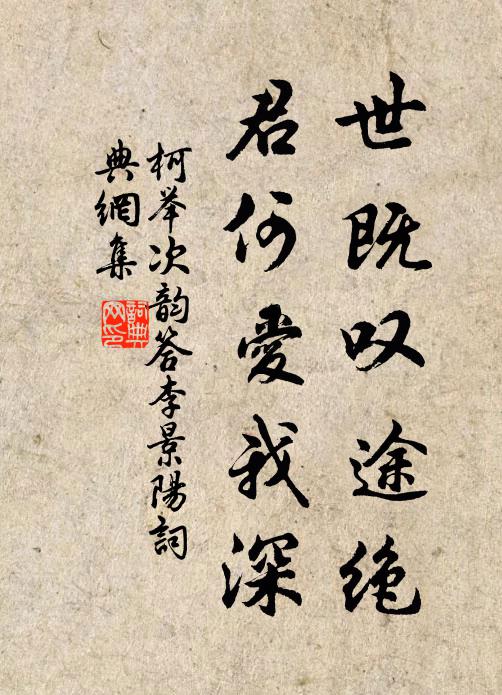 世既叹途绝
君何愛我深
柯举次韵答李景陽詞
典網集
詞典網印